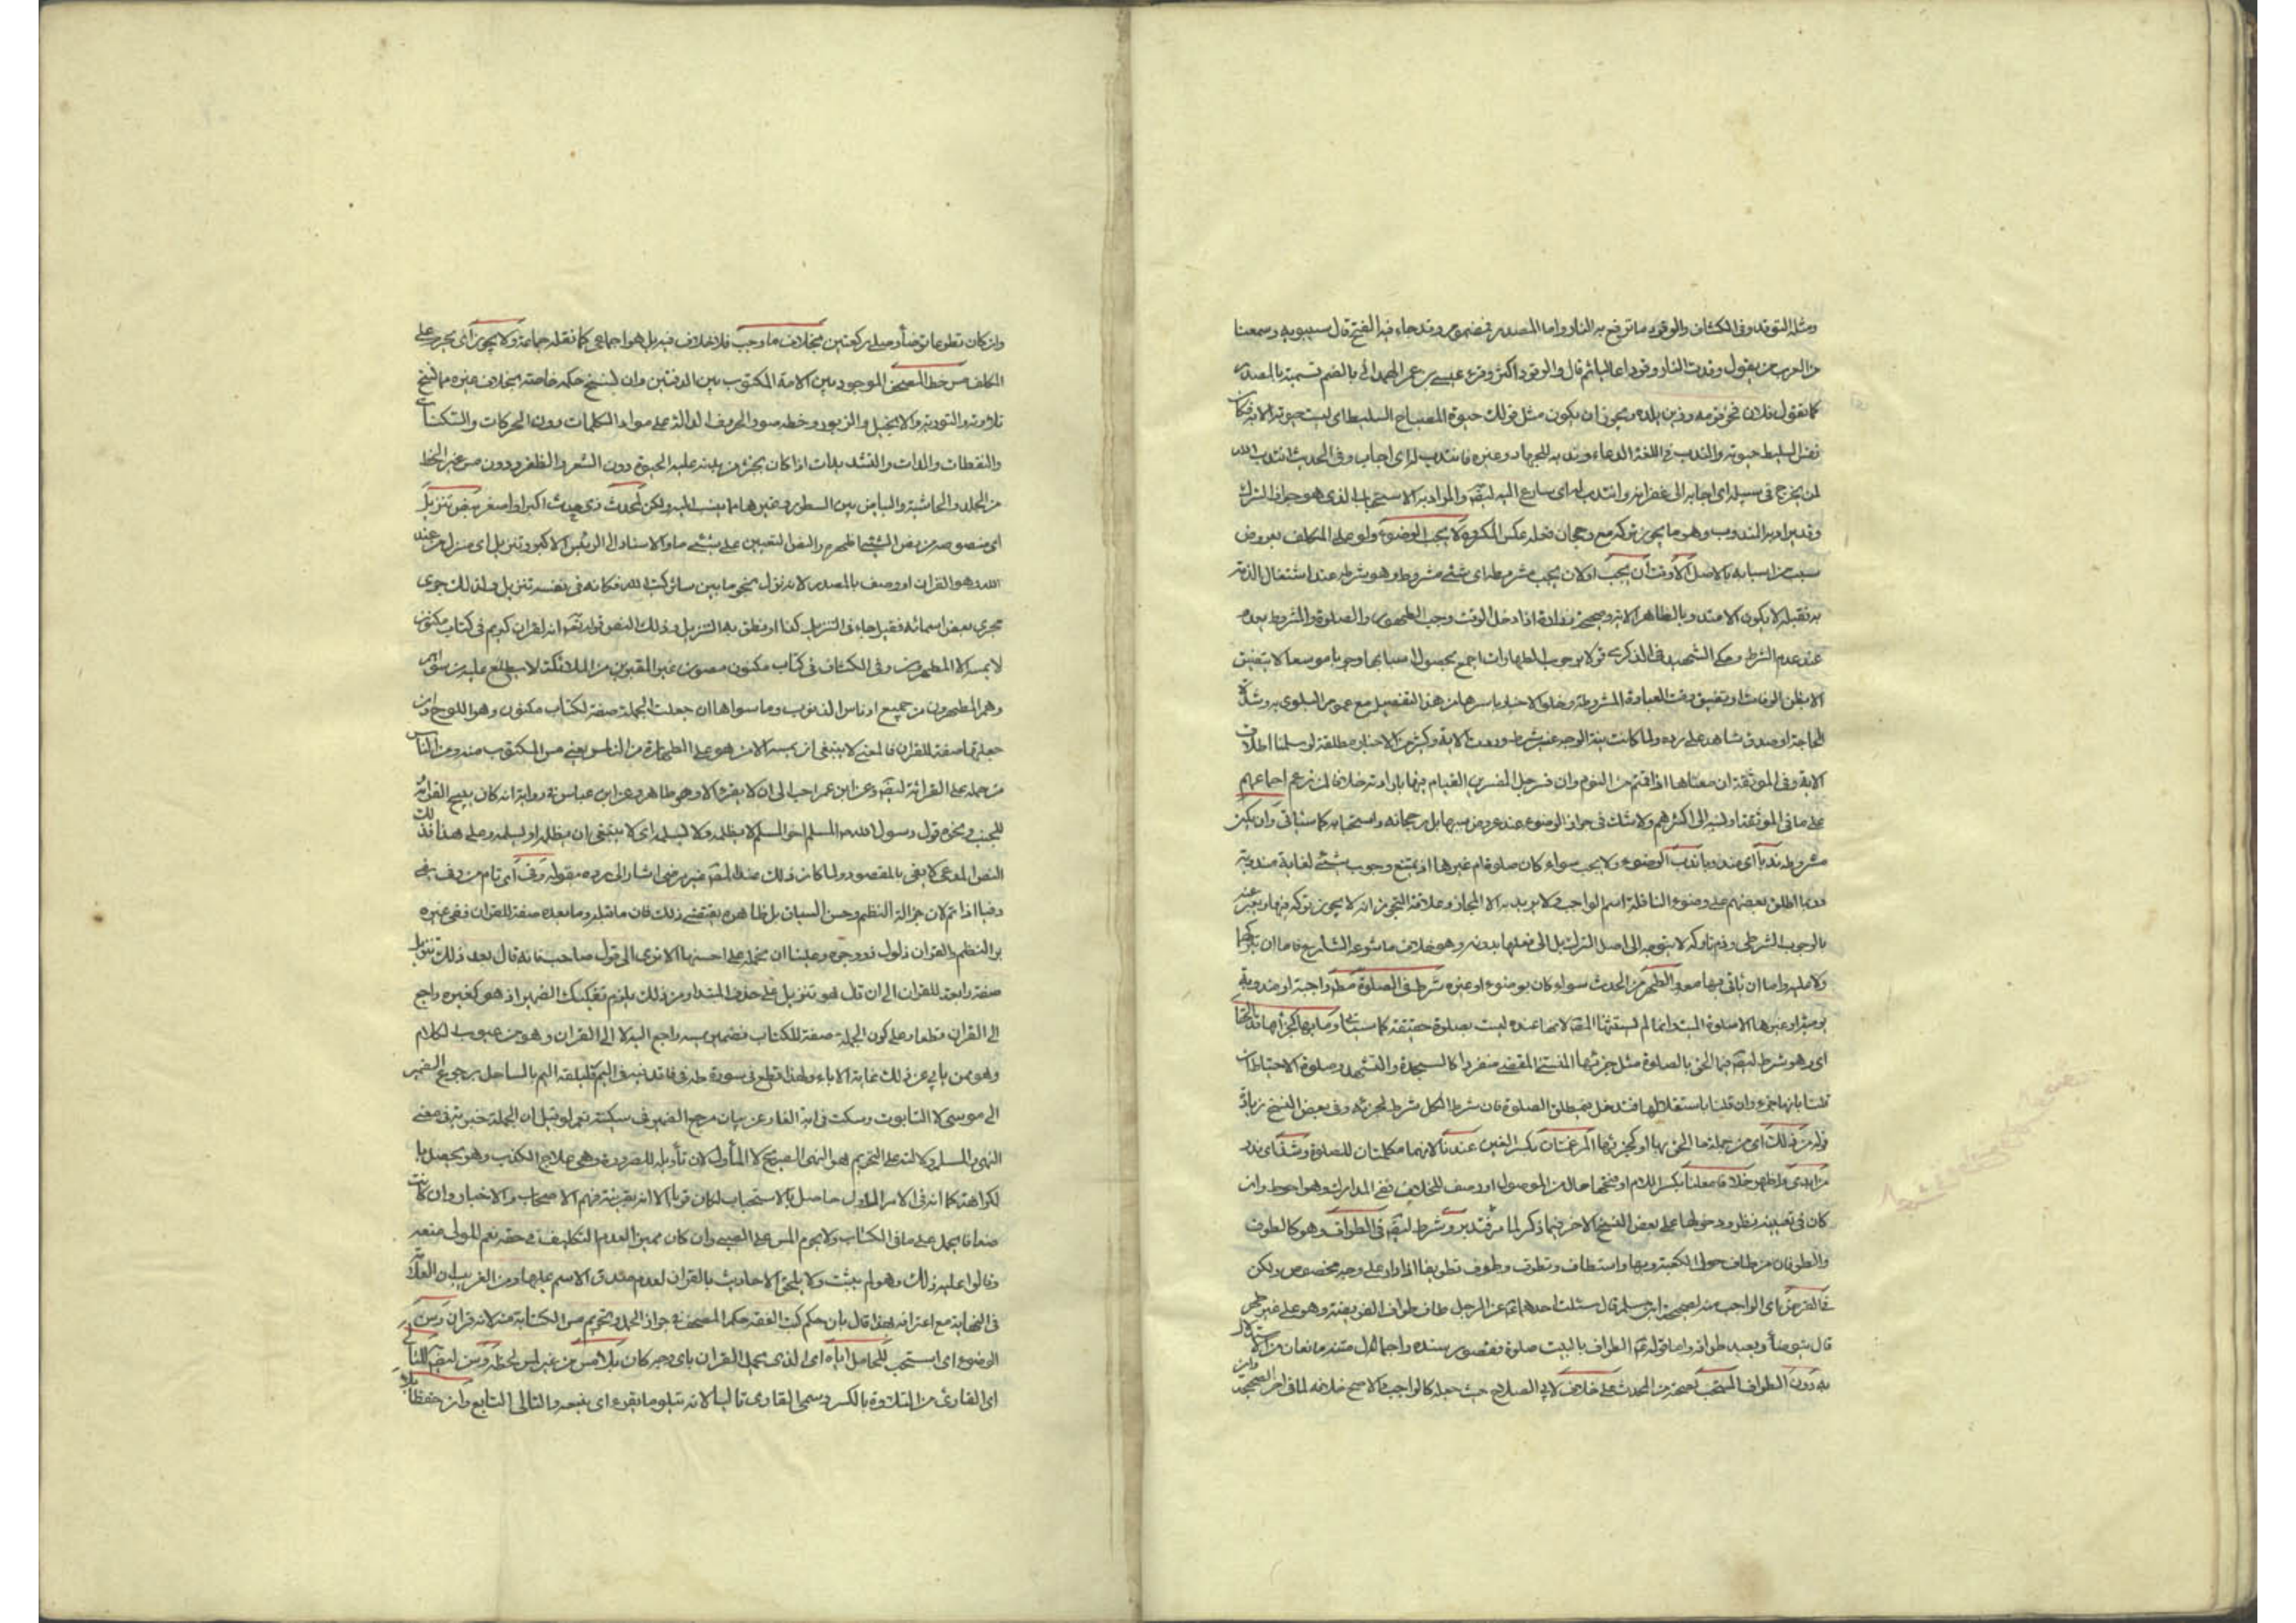 ومثله التوقد وفى الكشاف والوقود ما ترفع به النار واما المصدر فمضموم وقد جاء فيه الفتح قال سيبويه وسمعنا
من العرب من يقول وقدت النار وقودا عاليا ثم قال والوقود اكثر وقرء عيسى بن عمر الهمدانى بالضم تسمية بالمصدر
كما يقول فلان فخر قومه وزين بلده ويجوز ان يكون مثل قولك حيوة المصباح السليط اى ليست حيوته الا به فكان
نفس السليط حيوته والندب فى اللغة الدعاء وندبه للجهاد وغيره فانتدب له اى اجاب وفى الحديث انتدب الله
لمن يخرج فى سبيله اى اجابه الى غفرانه وانتدب له اى سارع اليه ايضا والمراد به الاستحباب الذى هو جواز الترك
وقد يراد به المندوب وهو ما يجوز تركه مع رجحان فعله عكس المكروه لا يجب الوضوء ولو على المكلف بعروض
سبب من اسبابه بالاصل الا وقت ان يجب اولان يجب مشروطه اى شئ مشروط وهو شرطه عند اشتغال الذمة
به فقبله لا يكون الا مندوبا لظاهر الاية وصحيح زرارة اذا دخل الوقت وجب الطهور والصلوة والمشروط يعدم
عند عدم الشرط وحكى الشهيد فى الذكرى قولا بوجوب الطهارات اجمع بحصول اسبابها وجوبا موسعا لا يتضيق
الا بظن الوفات او بتضيق وقت العبادة المشروطة وخلو الاخبار باسرها من هذا التفصيل مع عموم البلوى به وشدة
الحاجة اوصدق شاهد على رده ولما كانت بنية الوجه غير شرط وردت الاية وكثير من الاخبار مطلقة لو سلمنا اطلاق
الاية وفى الموثقة ان معناها اذا قمتم من النوم وان فسر جل المفسرين القيام فيها بارادته خلافا لمن زعم اجماعهم
على ما فى الموثقة او نسبه الى اكثرهم ولا شك فى جواز الوضوء عند عروض سببها بل رجحانه واستحبابه كما سياتى وان يكن
مشروطه ندبا اى مندوبا ندب الوضوء ولا يجب سواء كان صلوة ام غيرها اذ يمتنع وجوب شئ لغاية مندوبة
وربما اطلق بعضهم على وضوء النافلة اسم الواجب ولا يريد به الا المجاز وعلاقة التجوز انه لا يجوز تركه فيها ويعبر عنه
بالوجوب الشرطى وذم تاركه لا يتوجه الى اصل الترك بل الى فعلها بدونه وهو خلاف ما شرعه الشارع فاما ان يتركها
ولا عليه واما ان ياتى فيها معه والطهر من الحدث سواء كان بوضوء او غيره شرط فى الصلوة مط واجبة او مندوبة
اى وهو شرط ايضا فيما الحق بالصلوة مثل جزئها المنسى المقضى منفردا كالسجدة والتشهد وصلوة الاحتياط ان
قلنا بانها جزء وان قلنا باستقلالها فتدخل فى مطلق الصلوة فان شرط الكل شرط لجزئه وفى بعض النسخ زيادة
قوله من ذلك اى من جملة ما الحق بها او كجزئها المرغمتان بكسر الغين عندنا لانهما مكملتان للصلوة وشذ اى ندر
من ابدى واظهر خلافا معلنا بكسر اللام او فتحها حال من الموصول او وصف للخلاف ففى المدارك وهو احوط وان
كان فى تعيينه نظر ودخولها على بعض النسخ الاخر فيما ذكر لما مر فتدبر وشرط ايضا فى الطواف وهو كالطوف
والطوفان من طاف حول الكعبة وبها واستطاف وتطوف وطوف تطويفا الدوران على وجه مخصوص ولكن
فالفرض اى الواجب منه لصحيحة ابن مسلم قال سئلت احدهما ع عن الرجل طاف طواف الفريضة وهو على غير طهر
قال يتوضأ ويعيد طوافه واما قوله ع الطواف بالبيت صلوة فقصور سنده واجمال متنه مانعان من الاستدلال
به دون الطواف المستحب لصحته من المحدث على خلاف لابى الصلاح حيث جعله كالواجب والاصح خلافه لما فى اخر الصحيحة وان
وان كان تطوعا توضأ وصلى ركعتين بخلاف ما وجب فلا خلاف فيه بل هو اجماعى كما نقله جماعة ولا يجوز اى يحرم على
المكلف مس خط المصحف الموجود بين الامة المكتوب بين الدفتين وان لنسخ حكمه خاصة بخلاف غيره مما نسخ
تلاوته والتورية والانجيل والزبور وخطه صور الحروف الدالة على مواد الكلمات دون الحركات والسكنات
والنقطات والمدات والتشديدات اذا كان بجزء من بدنه عليه الحيوة دون الشعر والظفر ودون مس غير الخط
من الجلد والحاشية والبياض بين السطور وغيرها مما ينسب اليه ولكن لمحدث ذى حدث اكبر او اصغر بنص تنزيل
اى منصوصه من نص الشئ اظهره والنص التعيين على شئ ما والاسناد الى الرئيس الاكبر وتنزيل اى منزل من عند
الله وهو القران او وصف بالمصدر لانه نزل نجوما بين سائر كتب الله فكانه فى نفسه تنزيل ولذلك جرى
مجرى بعض اسمائه فقيل جاء فى التنزيل كذا او نطق به التنزيل وذلك النص قوله تعالى انه لقران كريم فى كتاب مكنون
لا يمسه الا المطهرون وفى الكشاف فى كتاب مكنون مصون غير المقربين من الملائكة لا يطلع عليه من سواهم
وهم المطهرون من جميع ادناس الذنوب وما سواها ان جعلت الجملة صفة لكتاب مكنون وهو اللوح وان
جعلتها صفة للقران فالمعنى لا ينبغى ان يمسه الا من هو على الطهارة من الناس يعنى مس المكتوب منه ومن الناس
من حمله على القرائة ايضا وعن ابن عمر احب الى ان لا يقرء الا وهو طاهر وعن ابن عباس فى رواية انه كان يبيح القرائة
للجنب ونحوه قول رسول الله ص المسلم اخو المسلم لا يظلمه ولا يسلمه اى لا ينبغى ان يظلمه او يسلمه وعلى هذا فذلك
النص المدعى لا يفى بالمقصود ولما كان ذلك عند المص غير مرضى اشار الى رده بقوله وفى اى تام من وفى يفى
وفيا اذا تم لان جزالة النظم وحسن السياق بل ظاهره يقتضى ذلك فان ما قبله وما بعده صفة للقران ففى غيره
بر النظم والقران ذلول ذو وجوه وعلينا ان نحمله على احسنها الا ترى الى قول صاحبه فانه قال بعد ذلك تنزيل
صفة رابعة للقران الى ان قال هو تنزيل على حذف المبتداء ومن ذلك يلزم تفكيك الضمير اذ هو كغيره راجع
الى القران قطعا وعلى كون الجملة صفة للكتاب فضمير يمسه راجع اليه لا الى القران وهو من عيوب الكلام
وهو ممن يابى عن ذلك غاية الاباء ولهذا قطع فى سورة طه فى فاقذفيه فى اليم فليلقه اليم بالساحل برجوع الضمير
الى موسى لا التابوت وسكت فى اية الغار عن بيان مرجع الضمير فى سكينته نعم لو قيل ان الجملة خبرية فى معنى
النهى والمسلم دلالته على التحريم هو النهى الصريح لا المأول لان تأويله للضرورة وهى علاج الكذب وهو يحصل بال
لكراهة كما انه فى الامر المأول حاصل بالاستحباب لكان قويا الا انه بقرينة فهم الاصحاب والاخبار وان كانت
ضعافا يحمل على ما فى الكتاب ولا يحرم المس على الصبى وان كان مميزا لعدم التكليف فى حقه نعم للولى منعه
وقالوا عليه ذلك وهو لم يثبت ولا يلحق الاحاديث بالقران لعدم صدق الاسم عليها ومن الغريب ان العلامة
فى النهاية مع اعترافه بهذا قال بان حكم كتب الفقه حكم المصحف فى جواز الحمل وتحريم مس الكتابة منه لانه قران وسن
الوضوء اى استحب للحامل اياه اى الذى يحمل القران باى وجه كان بلا مس من غير لمس لخطه وسن ايضا للتالى
اى القارى من التلاوة بالكسر وسمى القارى تاليا لانه يتلو ما يقرء اى يتبعه والتالى التابع وان حفظا بلا